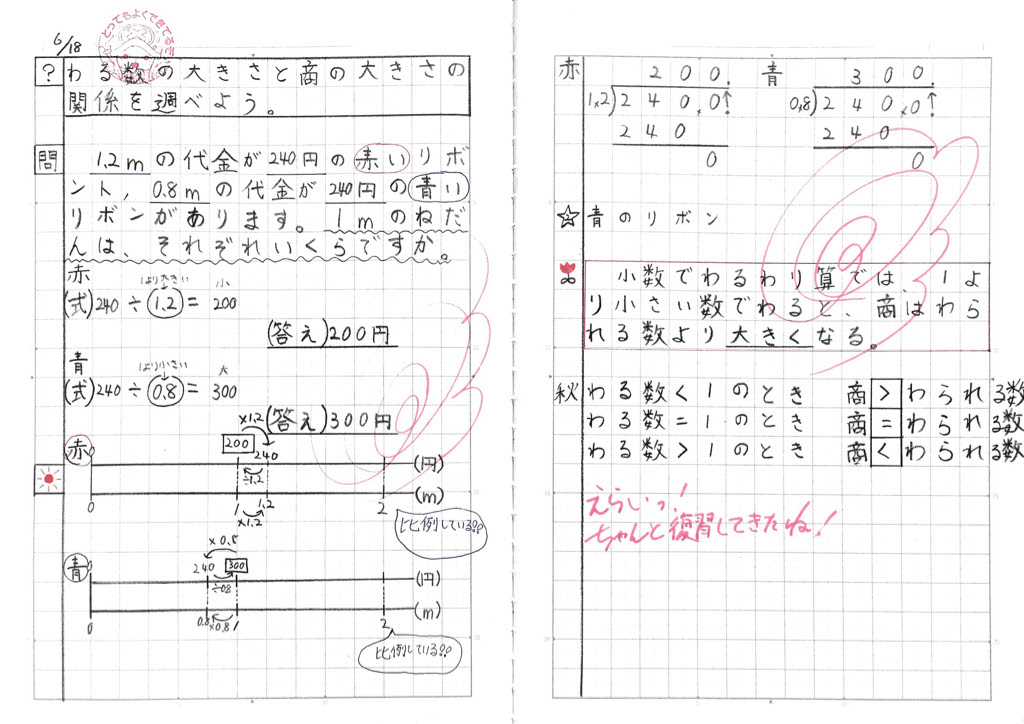 6/18
とってもよくできてるぞ
? わる数の大きさと商の大きさの
関係を調べよう。
問 1.2mの代金が240円の赤いリボ
ント、0.8mの代金が240円の青い
リボンがあります。1mのねだ
んは、それぞれいくらですか。
赤
1より大きい 小
(式)240÷1.2=200
(答え)200円
青
1より小さい 大
(式)240÷0.8=300
(答え)300円
×1.2
赤
200 240
0 (円)
÷1.2
0 1 1.2 2 (m)
×1.2
比例している??
青
×0.8
240 300
0 (円)
÷0.8
0 0.8 1 2 (m)
×0.8
比例している??
赤 200.
1.2)240.0↑
240
0
青 300.
0.8)240.0↑
240
0
青のリボン
小数でわるわり算では、1よ
り小さい数でわると、商はわら
れる数より大きくなる。
秋 わる数<1のとき 商>わられる数
わる数=1のとき 商=わられる数
わる数>1のとき 商<わられる数
えらいっ!
ちゃんと復習してきたね!